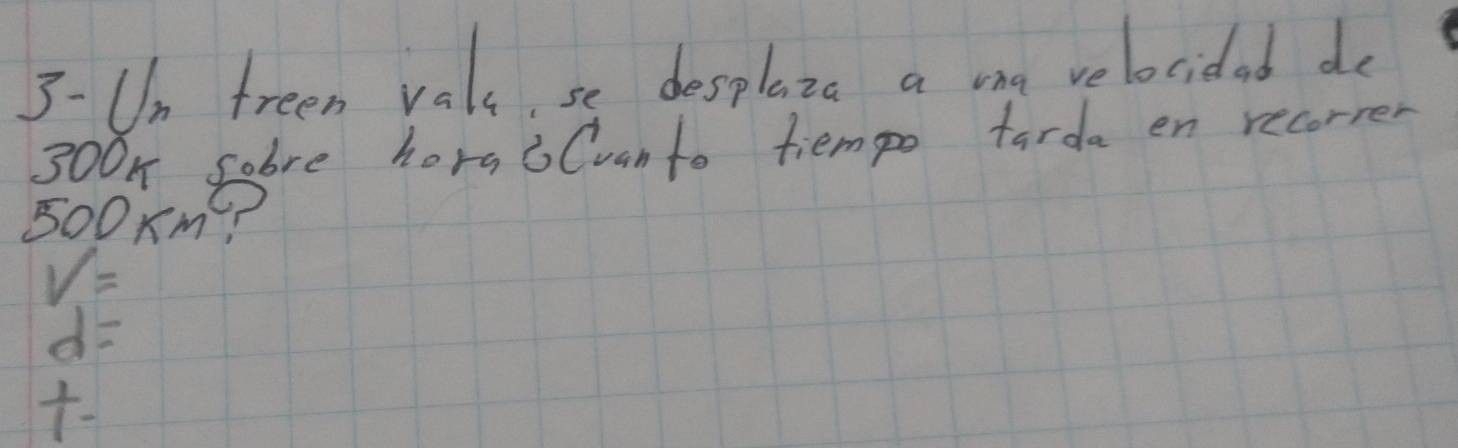 3- Un treen vala, se desplaza a una velocidad de
300K sobre hora ¿Cuanto tiempo tarda en recorrer
500 Km?
V=
d=
t-